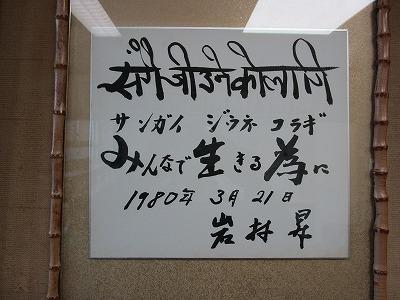 संगै जीउने कोलागि
サンガイ ジウネ コラギ
みんなで生きる為に
1980年 3月 21日
岩村 昇